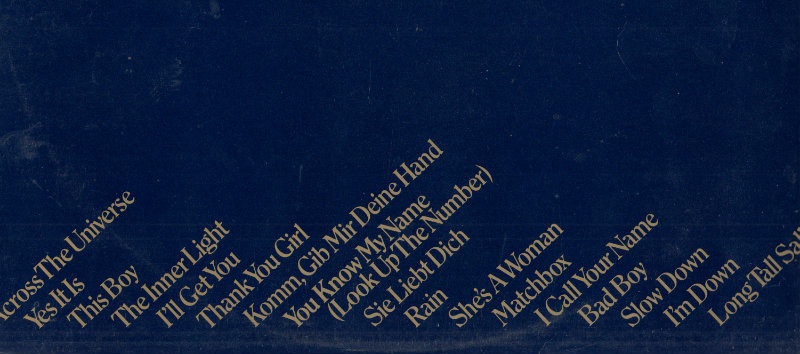 cross The Universe
Yes It Is
This Boy
The Inner Light
I'll Get You
Thank You Girl
Komm, Gib Mir Deine Hand
You Know My Name
(Look Up The Number)
Sie Liebt Dich
Rain
She's A Woman
Matchbox
I Call Your Name
Bad Boy
Slow Down
I'm Down
Long Tall Sa